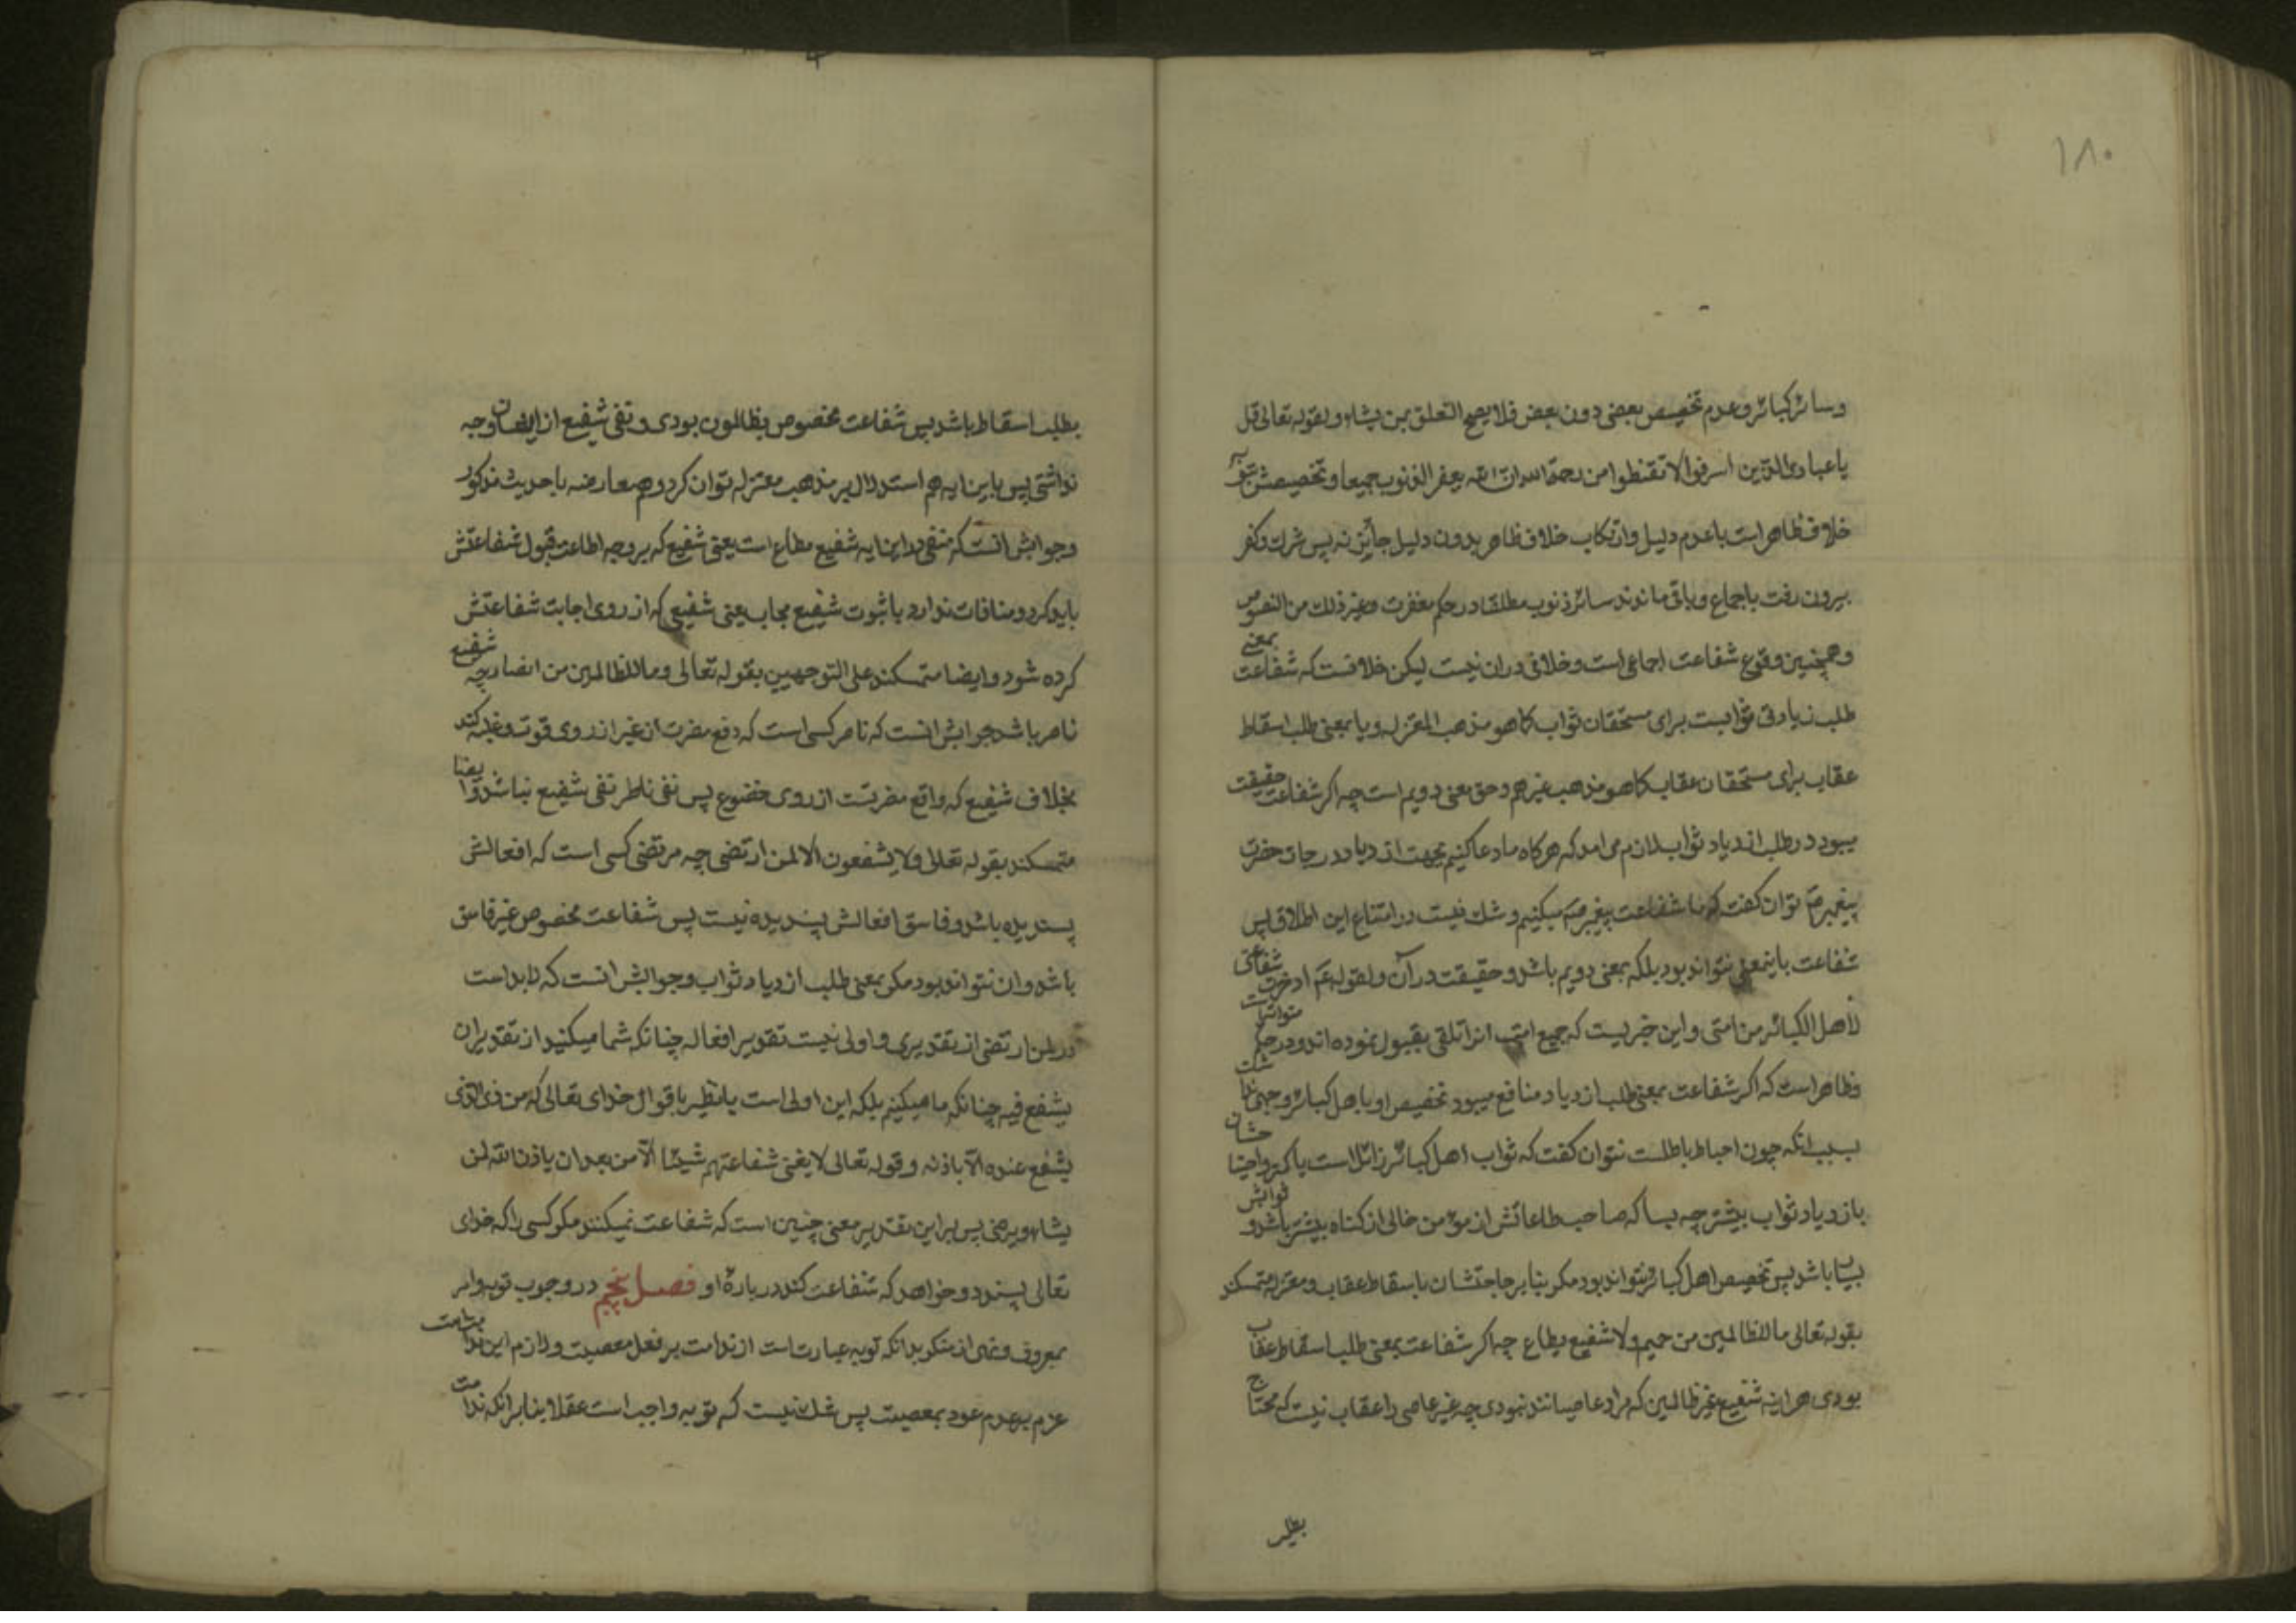 ۱۸۰
وسائر کبائر و عدم تخصیص بعضی دون بعض فلا یصح التعلق بمن یشاء و لقوله تعالی قل
یا عبادی الذین اسرفوا لا تقنطوا من رحمة الله ان الله یغفر الذنوب جمیعا و تخصیصش بتوبه
خلاف ظاهر است با عدم دلیل و ارتکاب خلاف ظاهر بدون دلیل جائز نه پس شرک و کفر
بیرون رفت باجماع و باقی ماندند سائر ذنوب مطلقا در حکم مغفرت و غیر ذلک من النصوص
و همچنین وقوع شفاعت اجماعی است و خلافی دران نیست لیکن خلافست که شفاعت بمعنی
طلب زیادتی ثوابست برای مستحقان ثواب کما هو مذهب المعتزله و یا بمعنی طلب اسقاط
عقاب برای مستحقان عقاب کما هو مذهب غیرهم و حق معنی دویم است چه اکر شفاعت حقیقت
میبود در طلب ازدیاد ثواب لازم می امد که هرکاه ما دعا کنیم بجهت ازدیاد درجات حضرت
پیغمبر صم توان کفت که ما شفاعت پیغمبر صم میکنیم و شک نیست در امتناع این اطلاق پس
شفاعت باینمعنی نتواند بود بلکه بمعنی دویم باشد و حقیقت در آن و لقوله عم ادخرت شفاعتی
لاهل الکبائر من امتی و این خبریست که جمیع امت انرا تلقی بقبول نموده اند و در حکم متواتراست
و ظاهر است که اکر شفاعت بمعنی طلب ازدیاد منافع میبود تخصیص او باهل کبائر وجهی نداشت
بسبب انکه چون احباط باطلست نتوان کفت که ثواب اهل کبائر زائل است یا کمتر و احتیاجشان
بازدیاد ثواب بیشتر چه بسا که صاحب طاعاتش از مؤمن خالی از کناه بیشتر باشد و ثوابش
بسیار باشد پس تخصیص اهل کبائر نتواند بود مکر بنابر حاجتشان باسقاط عقاب و معتزله متمسکند
بقوله تعالی ما للظالمین من حمیم ولا شفیع یطاع چه اکر شفاعت بمعنی طلب اسقاط عقاب
بودی هراینه شفیع غیر ظالمین که مراد عاصیانند نبودی چه غیر عاصی را عقاب نیست که محتاج
بطلب
بطلب اسقاط باشد پس شفاعت مخصوص بظالمون بودی و نفی شفیع از ایشان وجه
نداشتی پس باین ایه هم استدلال بر مذهب معتزله توان کرد و هم معارضه با حدیث مذکور
و جوابش انست که منفی در این ایه شفیع مطاع است یعنی شفیع که بر وجه اطاعت قبول شفاعتش
باید کرد و منافات ندارد با ثبوت شفیع مجاب یعنی شفیعی که از روی اجابت شفاعتش
کرده شود و ایضا متمسکند علی التوجهین بقوله تعالی و ما للظالمین من انصار چه شفیع
ناصر باشد جوابش انست که ناصر کسی است که دفع مضرت از غیر از روی قوت و غلبه کند
بخلاف شفیع که واقع مضرتست از روی خضوع پس نفی ناطر نفی شفیع نباشد و ایضا
متمسکند بقوله تعالی ولا یشفعون الا لمن ارتضی چه مرتضی کسی است که افعالش
پسندیده باشد و فاسق افعالش پسندیده نیست پس شفاعت مخصوص غیر فاسق
باشد و ان نتواند بود مکر بمعنی طلب ازدیاد ثواب و جوابش انست که لابد است
در لمن ارتضی از تقدیری و اولی نیست تقدیر افعاله چنانکه شما میکنید از تقدیر ان
یشفع فیه چنانکه ما میکنیم بلکه این اولی است یا نظر باقوال خدای تعالی که من ذی الذی
یشفع عنده الا باذنه و قوله تعالی لا یغنی شفاعتهم شیئا الا من بعد ان یاذن الله لمن
یشاء و یرضی پس براین تقدیر معنی چنین است که شفاعت نمیکنند مکر کسی را که خدای
تعالی پسندد و خواهد که شفاعت کند در بارۀ او فصل پنجم در وجوب توبه و امر
بمعروف و نهی از منکر بدانکه توبه عبارتست از ندامت بر فعل معصیت و لازم این ندامت
عزم بر عدم عود بمعصیت پس شک نیست که توبه واجب است عقلا بنا برانکه ندامت